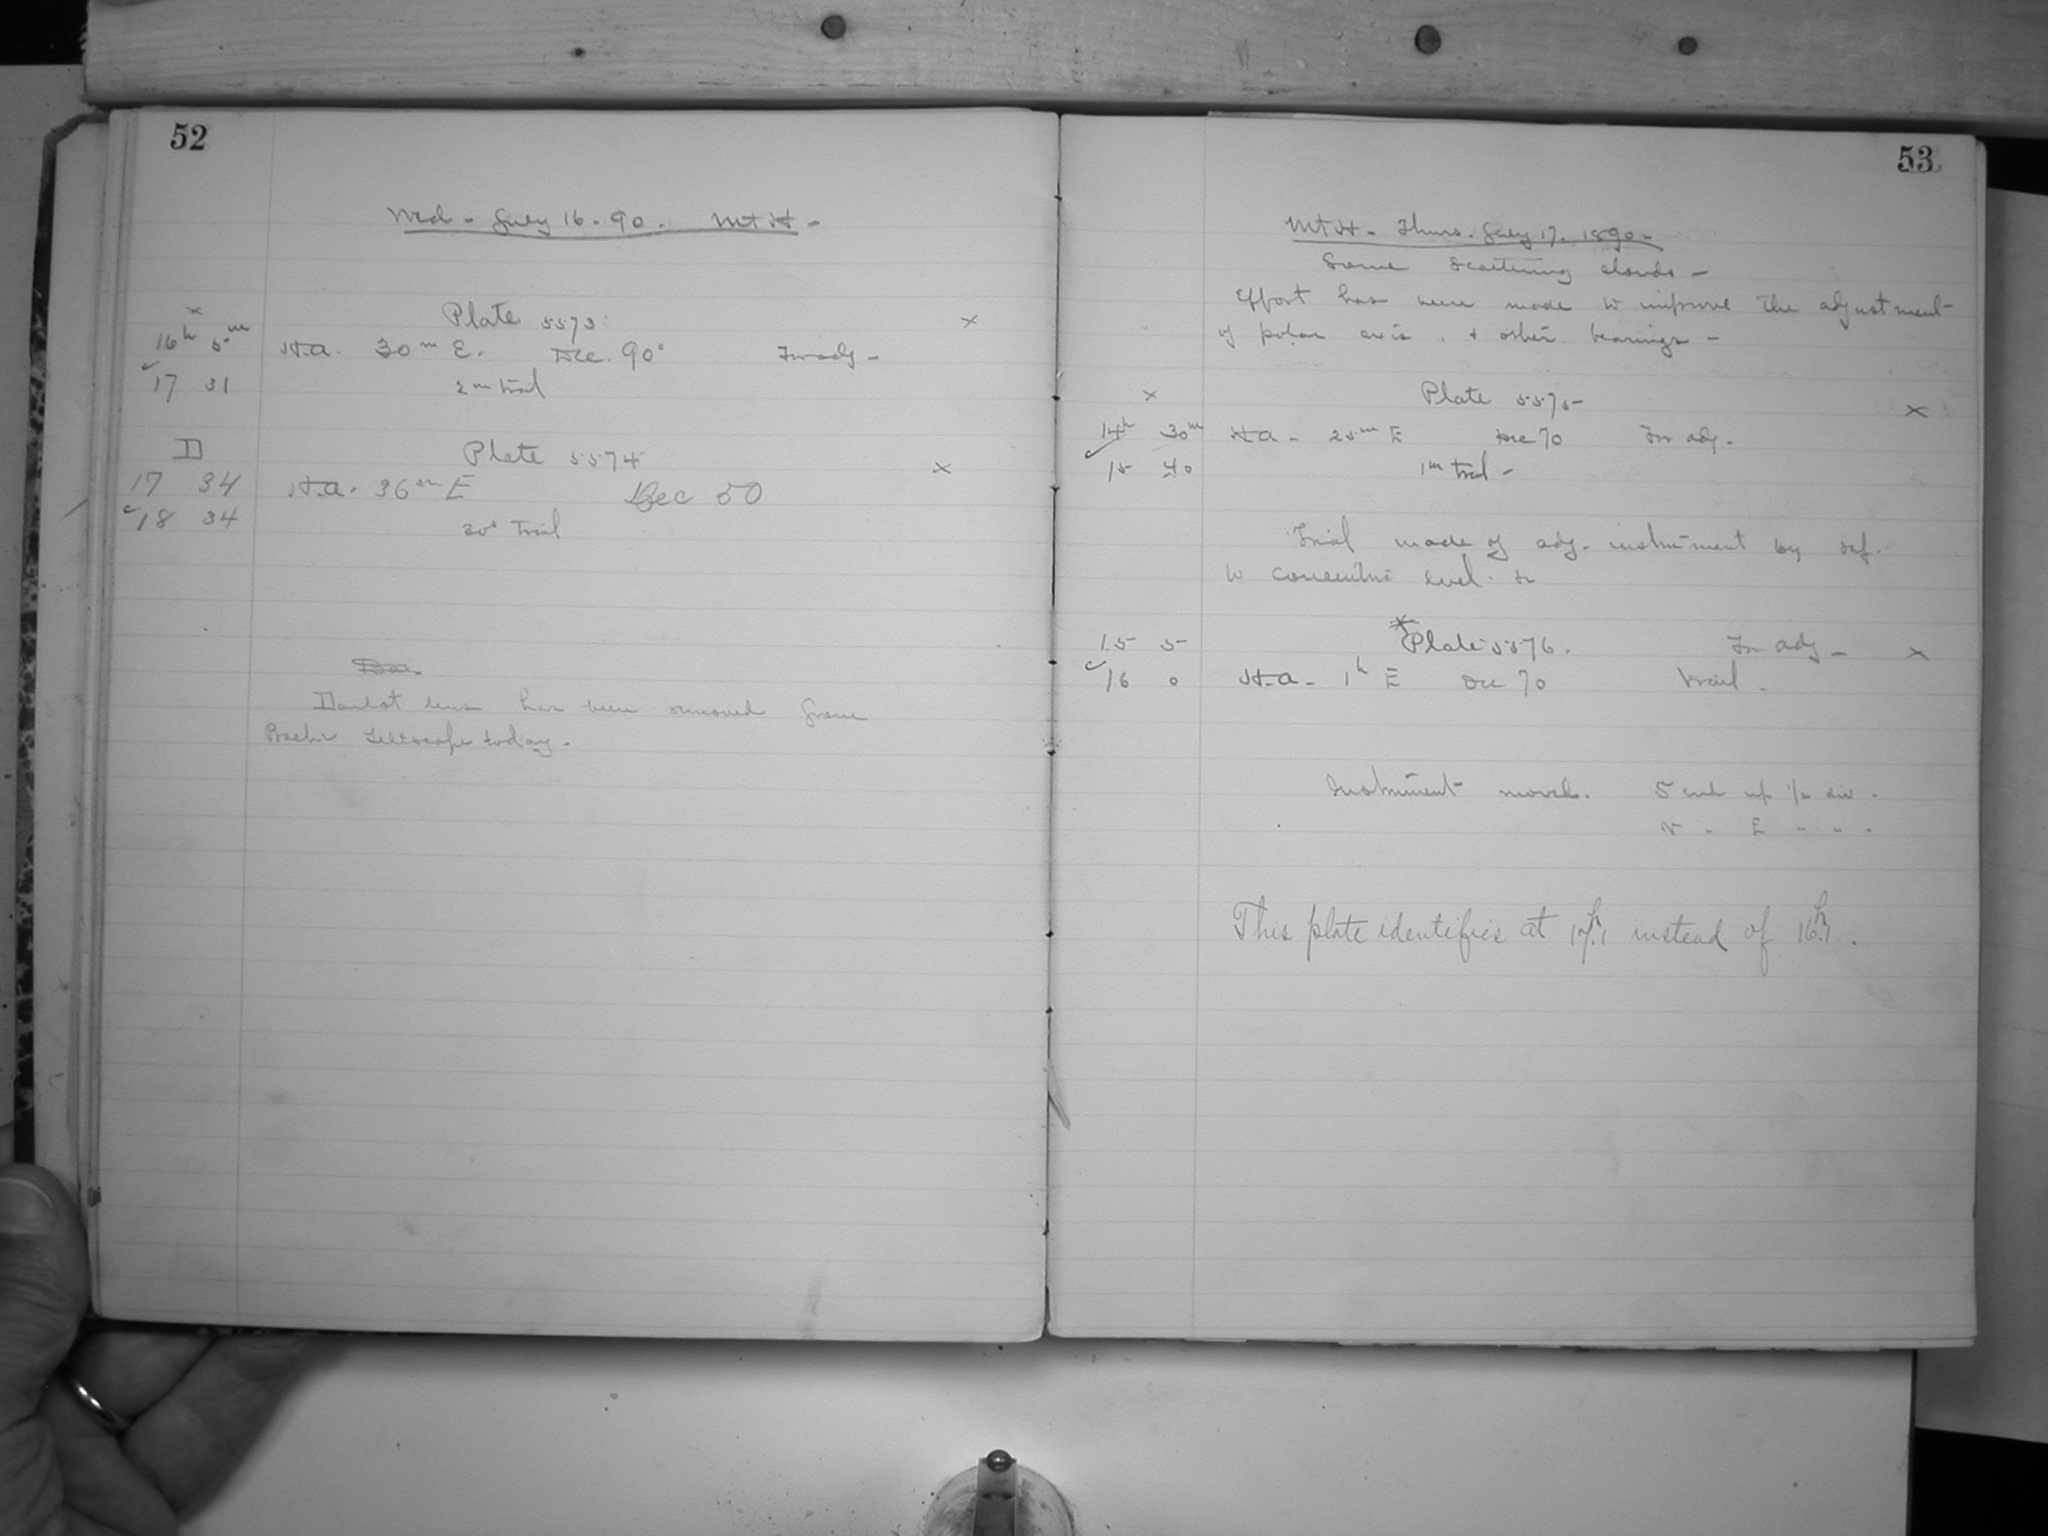 52
Wed - July 16 - 90. Mt H -
x Plate 5573 x
16h 5m H.a. 30m E. Dec. 90° For adj -
17 31 2m trail
D Plate 5574 x
17 34 H.a. 36m E Dec 50
18 34 30s Trail
Dar
Darlot lens has been removed from
Bache Telescope today -
53
Mt H - Thurs. July 17. 1890 -
Some scattering clouds -
Effort has been made to improve the adjustment
of polar axis . + other bearings -
x Plate 5575 - x
14h 30m H a - 25m E Dec 70 For adj.
15 40 1m trail -
Trial made of adj. instrument by ref.
to level
15 5 * Plate 5576. For adj - x
16 0 H-a - 1h E Dec 70 trail -
Instrument moved. S end up 1/2 div -
N " E " " "
This plate identifies at 17h.1 instead of 16h.1.